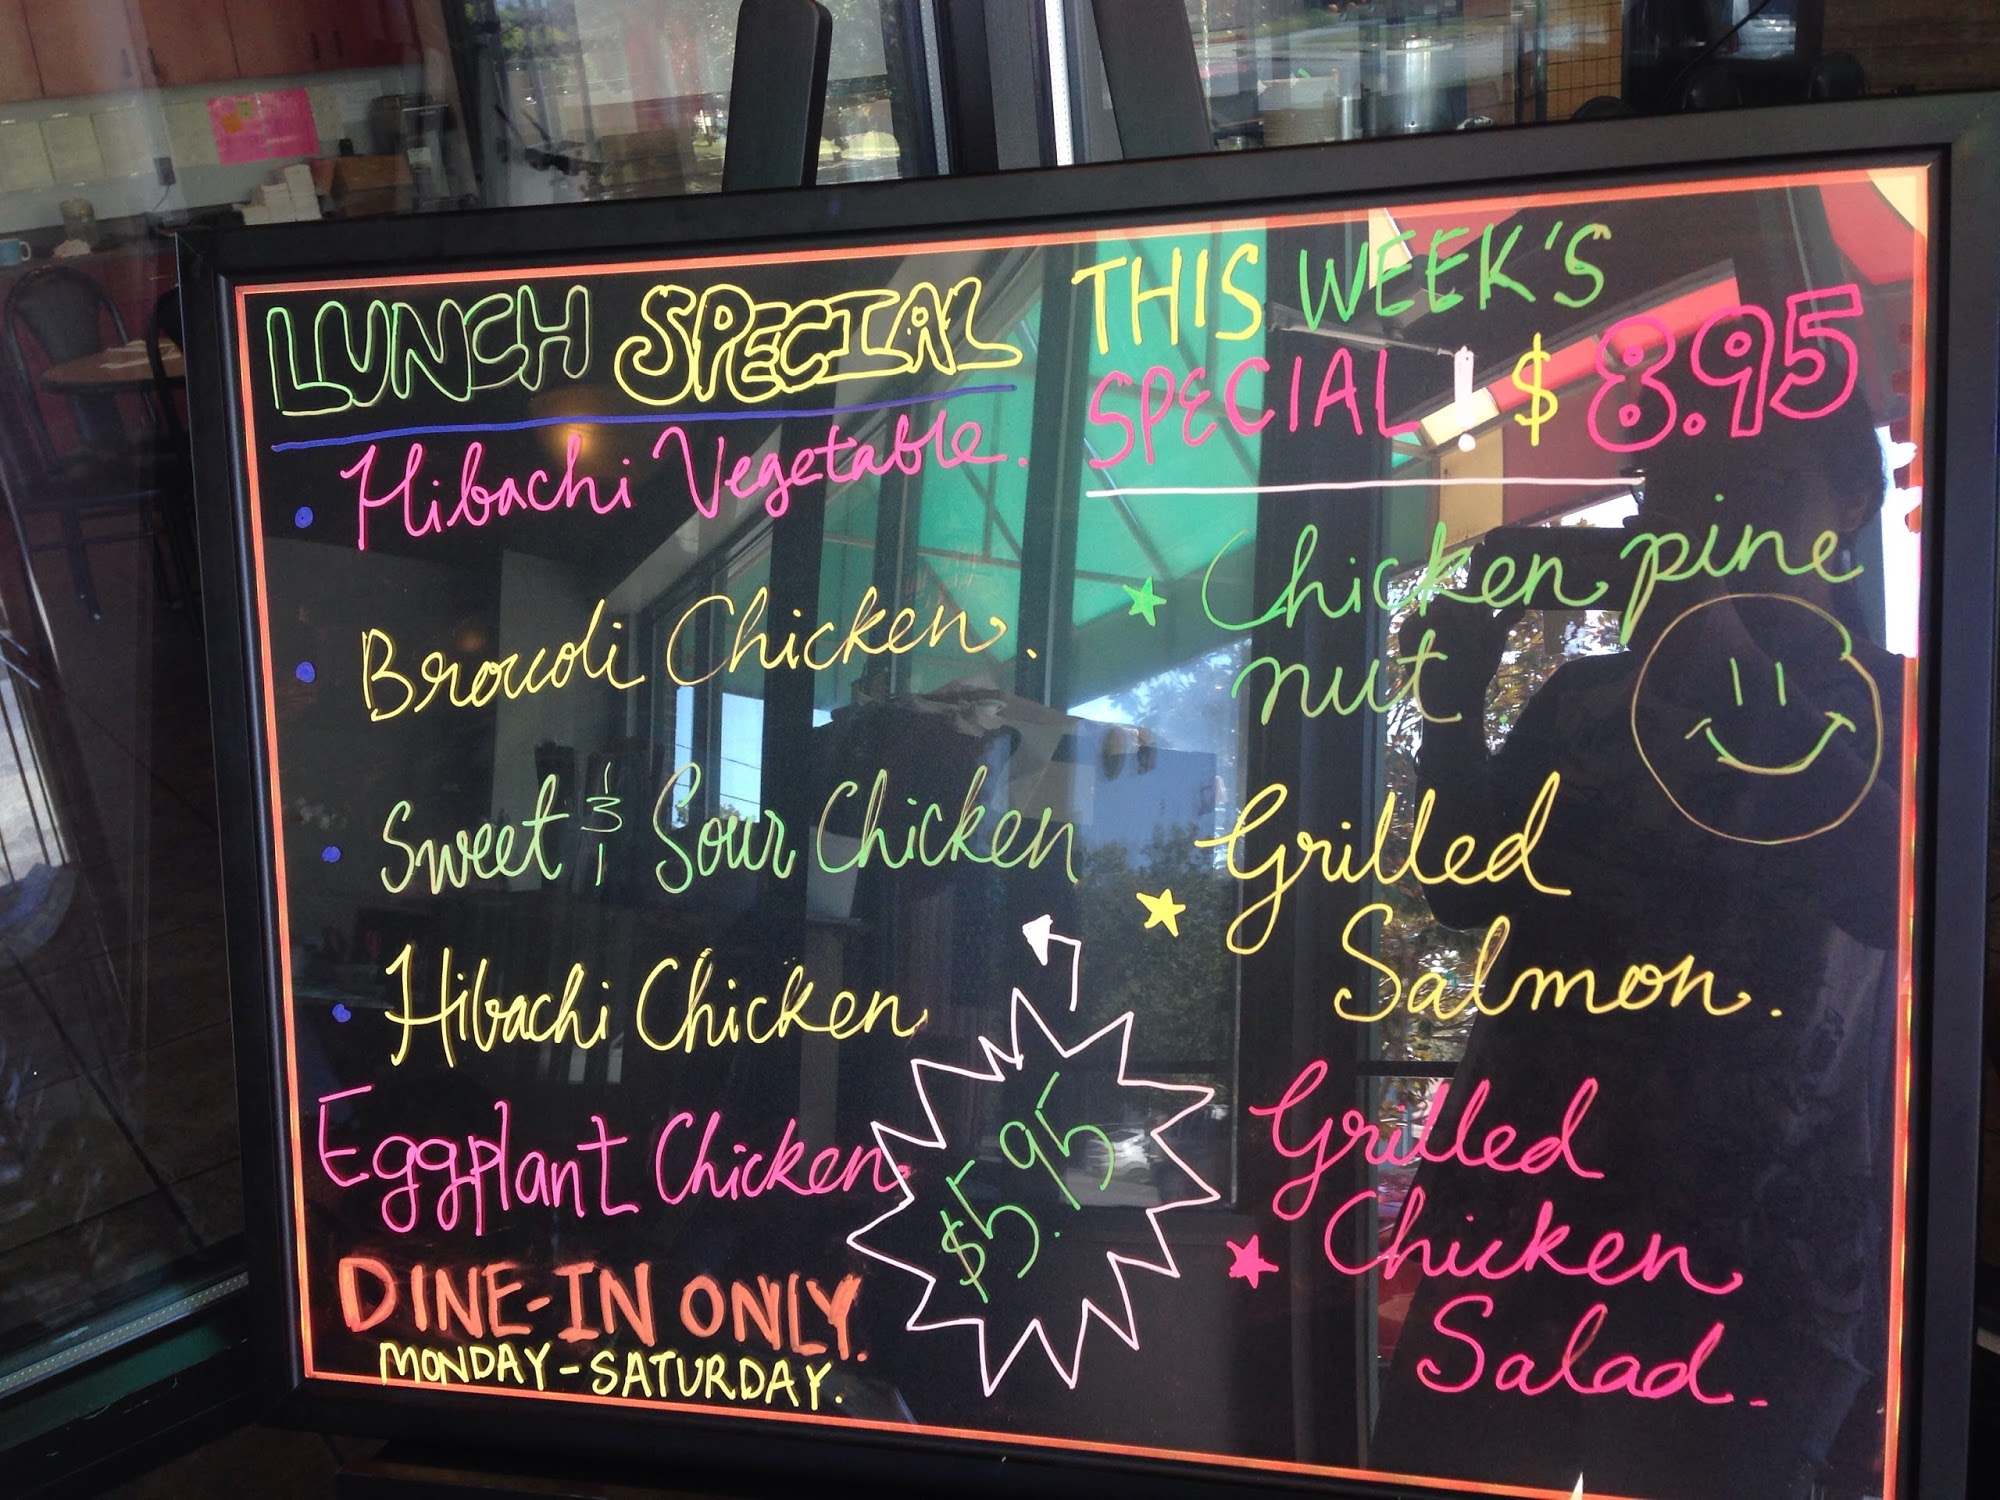 LUNCH SPECIAL
Hibachi Vegetable.
Broccoli Chicken.
Sweet & Sour Chicken
Hibachi Chicken
Eggplant Chicken
$5.95
DINE-IN ONLY.
MONDAY-SATURDAY.
THIS WEEK'S
SPECIAL! $8.95
Chicken pine
nut
Grilled
Salmon.
Grilled
Chicken
Salad.